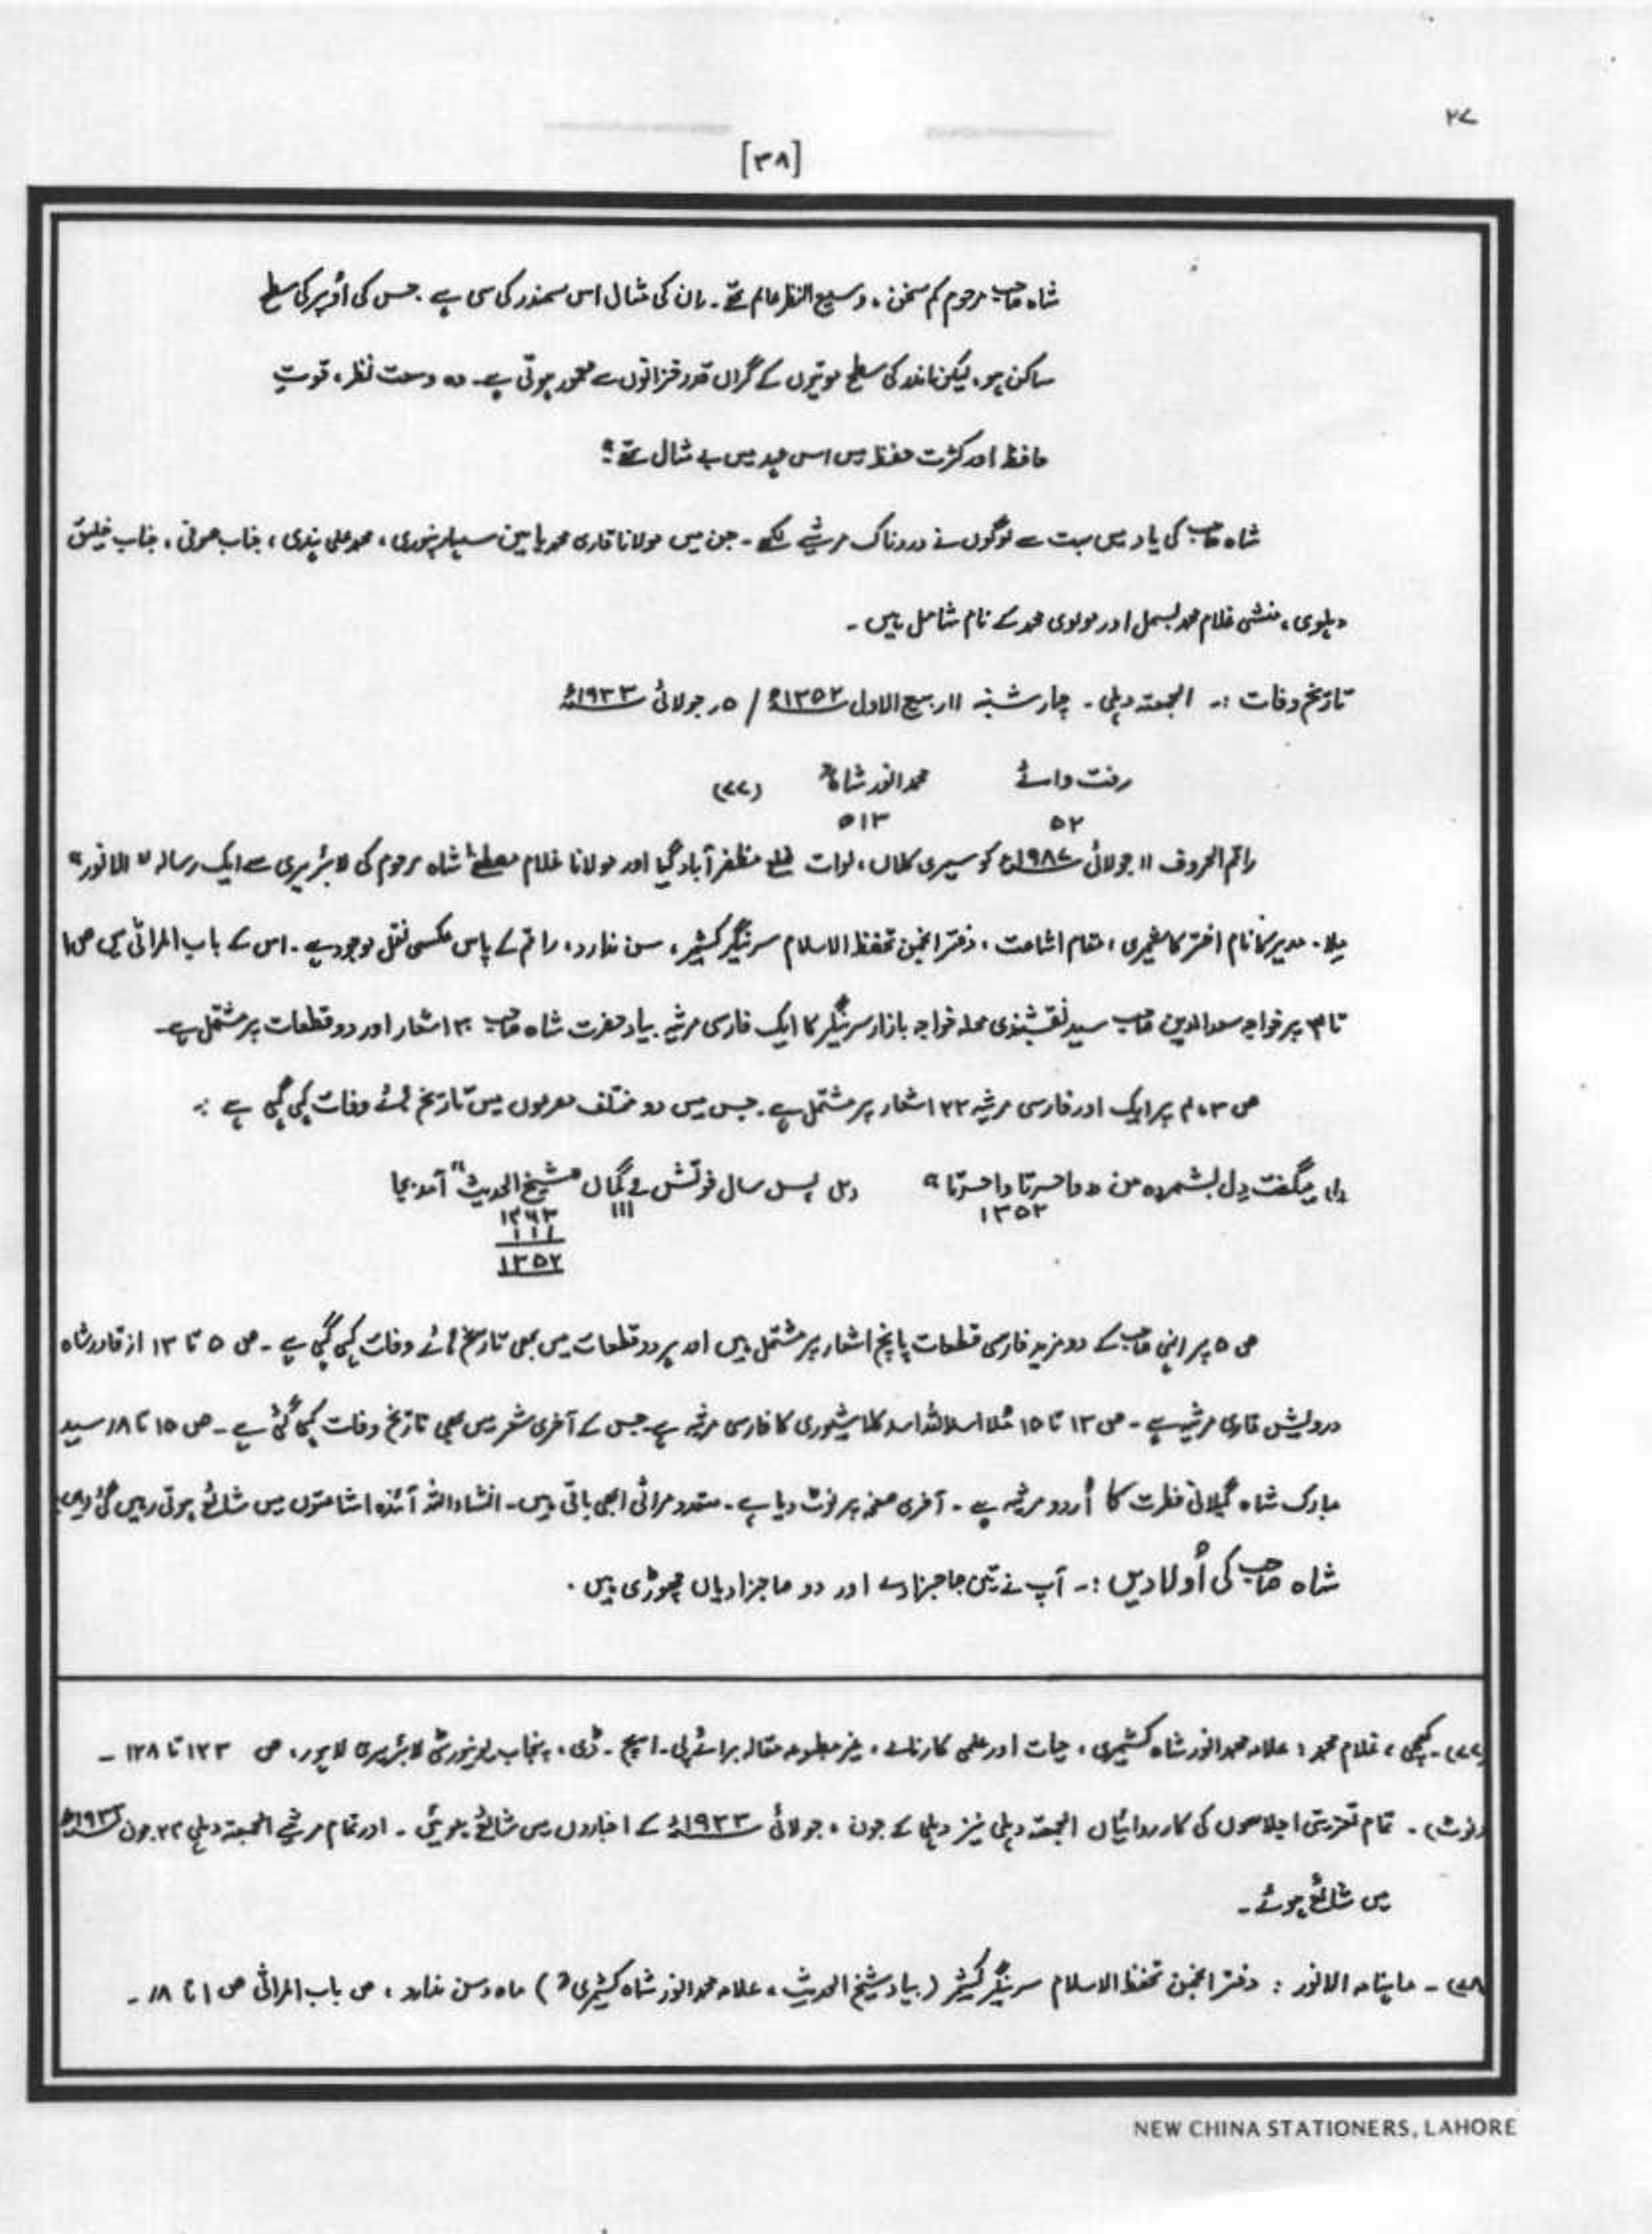 ۲۷
[۳۸]
شاہ صاحب مرحوم کم سخن، وسیع النظر عالم تھے۔ ان کی مثال اس سمندر کی سی ہے۔ جس کی اُوپر کی سطح
ساکن ہو، لیکن اندر کی سطح موتیوں کے گراں قدر خزانوں سے معمور ہوتی ہے۔ وہ وسعت نظر، قوتِ
حافظ اور کثرت حفظ میں اس عہد میں بے مثال تھے"
شاہ صاحب کی یاد میں بہت سے لوگوں نے دردناک مرثیے لکھے۔ جن میں مولانا قاری محمد یامین سہارنپوری، محمد علی ہندی، جناب صوفی، جناب خلیق
دہلوی، منشی غلام محمد بسمل اور مولوی محمد کے نام شامل ہیں۔
تاریخ وفات :۔ الجمعتہ دہلی۔ چار شنبہ ۱۱ ربیع الاول ۱۳۵۲ھ / ۵ر جولائی ۱۹۳۳ء
رفت وائے محمد انور شاہؒ (۷۷)
۵۲ ۵۱۳
راقم الحروف ۱۱ جولائی ۱۹۸۷ء کو سیری کلاں، لوات ضلع مظفر آباد گیا اور مولانا غلام مصطفےٰ شاہ مرحوم کی لائبریری سے ایک رسالہ "الانور"
ملا۔ مدیر کا نام اختر کاشمیری، مقام اشاعت، دفتر انجمن تحفظ الاسلام سرینگر کشمیر، سن ندارد، راقم کے پاس عکسی نقل موجود ہے۔ اس کے باب المراثی میں ص۱
تا ۳ پر خواجہ سعد الدین صاحب سید نقشبندی محلہ خواجہ بازار سرینگر کا ایک فارسی مرثیہ بیاد حضرت شاہ صاحب ۳۰ اشعار اور دو قطعات پر مشتمل ہے۔
ص ۳، ۴ پر ایک اور فارسی مرثیہ ۲۲ اشعار پر مشتمل ہے۔ جس میں دو مختلف مصرعوں میں تاریخ ہائے وفات کہی گئی ہے :۔
(۱) میگفت دِل بشمردہ من "واحسرتا واحسرتا" (۲) پس سال فوتش بے گماں "شیخ الحدیث" آمد بجا
۱۳۵۲ ۱۱۱ ۱۲۴۳
۱۱۱
۱۳۵۲
ص ۵ پر انہی صاحب کے دو مزید فارسی قطعات پانچ اشعار پر مشتمل ہیں اور ہر دو قطعات میں بھی تاریخ ہائے وفات کہی گئی ہے۔ ص ۵ تا ۱۳ از قادر شاہ
درویش فارسی مرثیہ ہے۔ ص ۱۳ تا ۱۵ مُلا اسد اللہ اسد کا فارسی مرثیہ ہے جس کے آخری شعر میں بھی تاریخ وفات کہی گئی ہے۔ ص ۱۵ تا ۱۸ سید
مبارک شاہ گیلانی فطرت کا اُردو مرثیہ ہے۔ آخری صفحہ پر نوٹ دیا ہے۔ متعدد مراثی ابھی باقی ہیں۔ انشاء اللہ آئندہ اشاعتوں میں شائع ہوتی رہیں گی
شاہ صاحب کی اُولادیں :۔ آپ نے تین صاحبزادے اور دو صاحبزادیاں چھوڑی ہیں۔
(۷۷)۔ غلام محمد: علامہ محمد انور شاہ کشمیری، حیات اور علمی کارنامے، غیر مطبوعہ مقالہ برائے پی۔ ایچ۔ ڈی، پنجاب یونیورسٹی لائبریری لاہور، ص ۱۲۳ تا ۱۲۸ ۔
(نوٹ)۔ تمام تعزیتی اجلاسوں کی کارروائیاں الجمعتہ دہلی نیز دہلی کے جون، جولائی ۱۹۳۳ء کے اخباروں میں شائع ہوئیں۔ اور تمام مرثیے الجمعتہ دہلی ۲۲ جون ۱۹۳۳ء
میں شائع ہوئے۔
(۷۸)۔ ماہنامہ الانور : دفتر انجمن تحفظ الاسلام سرینگر کشمیر (بیاد شیخ الحدیث، علامہ محمد انور شاہ کشمیریؒ) ماہ و سن ندارد، ص باب المراثی ص ۱ تا ۱۸۔
NEW CHINA STATIONERS, LAHORE